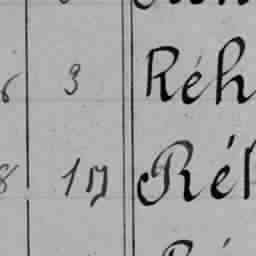 6 3 Réh
8 17 Ré